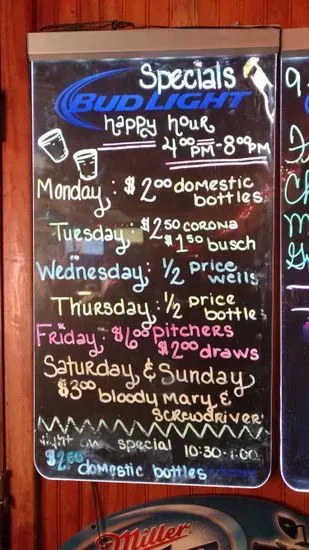 Specials
BUD LIGHT
happy hour
4:00PM-8:00PM
Monday: $2.00 domestic
bottles
Tuesday: $2.50 corona
$1.50 busch
Wednesday: 1/2 price
wells
Thursday: 1/2 price
bottles
Friday: $6.00 pitchers
$2.00 draws
Saturday & Sunday
$3.00 bloody Mary &
screwdriver
special 10:30-1:00
domestic bottles
Miller